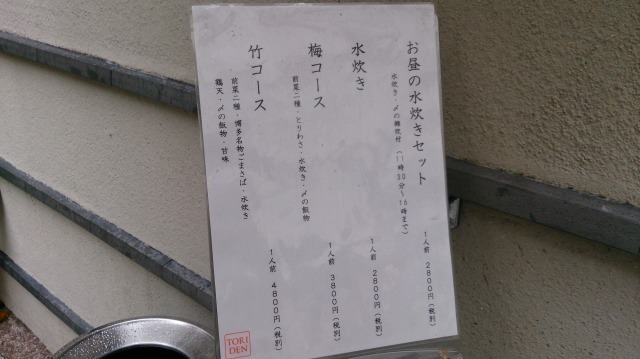 お昼の水炊きセット
水炊き・〆の雑炊付（11時30分〜16時まで）
1人前　2800円（税別）
水炊き
1人前　2800円（税別）
梅コース
前菜二種・とりわさ・水炊き・〆の飯物
1人前　3800円（税別）
竹コース
前菜二種・博多名物ごまさば・水炊き
鶏天・〆の飯物・甘味
1人前　4800円（税別）
TORI
DEN